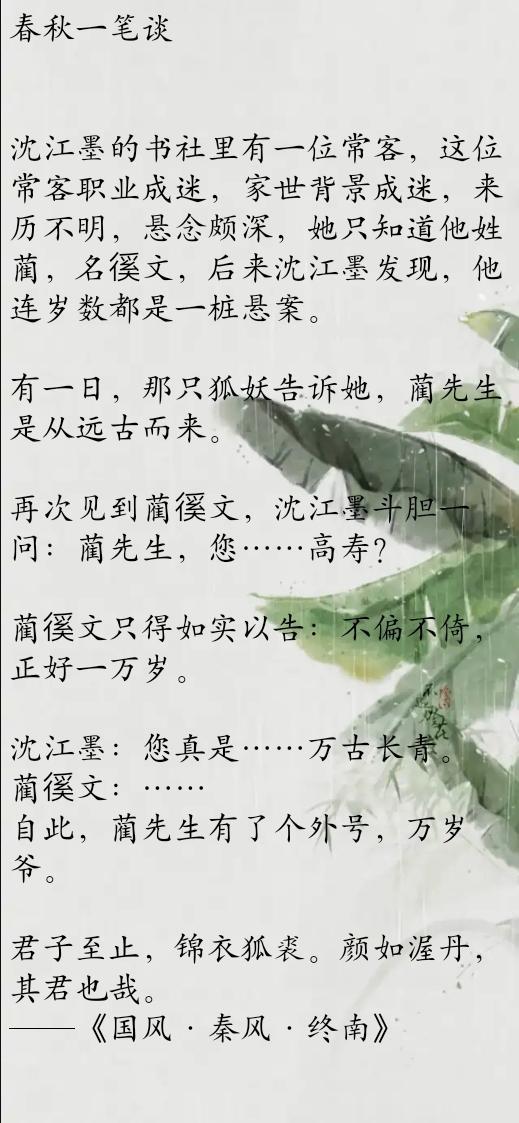 春秋一笔谈
沈江墨的书社里有一位常客，这位
常客职业成迷，家世背景成迷，来
历不明，悬念颇深，她只知道他姓
蔺，名徯文，后来沈江墨发现，他
连岁数都是一桩悬案。
有一日，那只狐妖告诉她，蔺先生
是从远古而来。
再次见到蔺徯文，沈江墨斗胆一
问：蔺先生，您……高寿？
蔺徯文只得如实以告：不偏不倚，
正好一万岁。
沈江墨：您真是……万古长青。
蔺徯文：……
自此，蔺先生有了个外号，万岁
爷。
君子至止，锦衣狐裘。颜如渥丹，
其君也哉。
——《国风·秦风·终南》